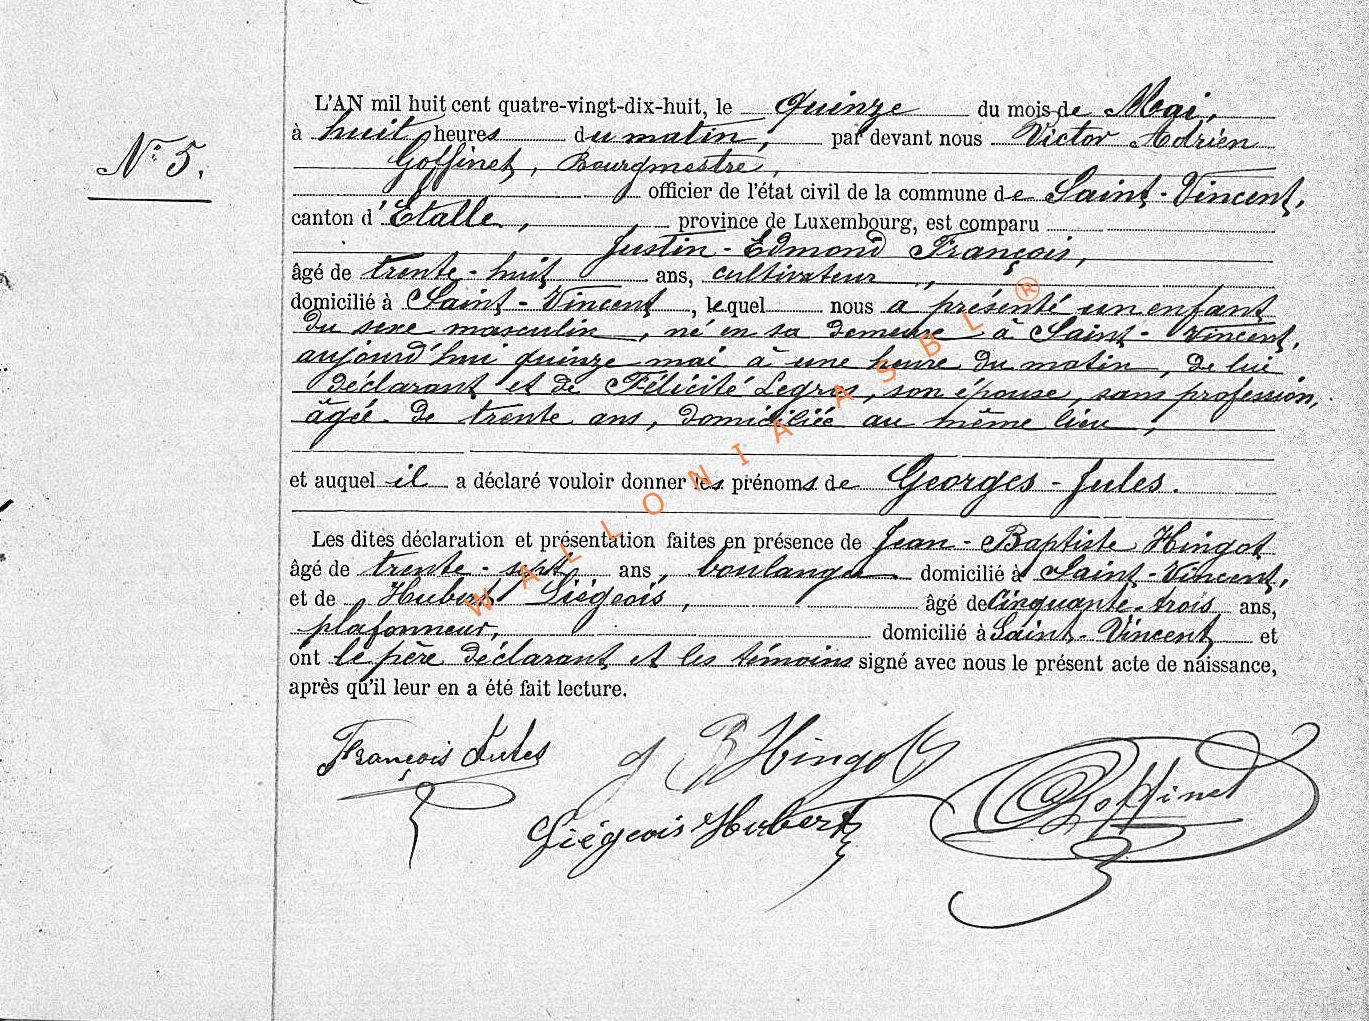 N° 5.
L'AN mil huit cent quatre-vingt-dix-huit, le quinze du mois de Mai,
à huit heures du matin, par devant nous Victor Adrien
Goffinet, Bourgmestre,
officier de l'état civil de la commune de Saint-Vincent,
canton d'Etalle, province de Luxembourg, est comparu
Justin-Edmond François,
âgé de trente-huit ans, cultivateur,
domicilié à Saint-Vincent, lequel nous a présenté un enfant
du sexe masculin, né en sa demeure à Saint-Vincent,
aujourd'hui quinze mai à une heure du matin, de lui
déclarant et de Félicité Legros, son épouse, sans profession,
âgée de trente ans, domiciliée au même lieu,
et auquel il a déclaré vouloir donner les prénoms de Georges-Jules.
Les dites déclaration et présentation faites en présence de Jean-Baptiste Hingot
âgé de trente-sept ans, boulanger domicilié à Saint-Vincent,
et de Hubert Liégeois, âgé de Cinquante-trois ans,
plafonneur, domicilié à Saint-Vincent et
ont le père déclarant et les témoins signé avec nous le présent acte de naissance,
après qu'il leur en a été fait lecture.
François J B Hingot
Liégeois Hubert Goffinet
WALLONIA ASBL ®